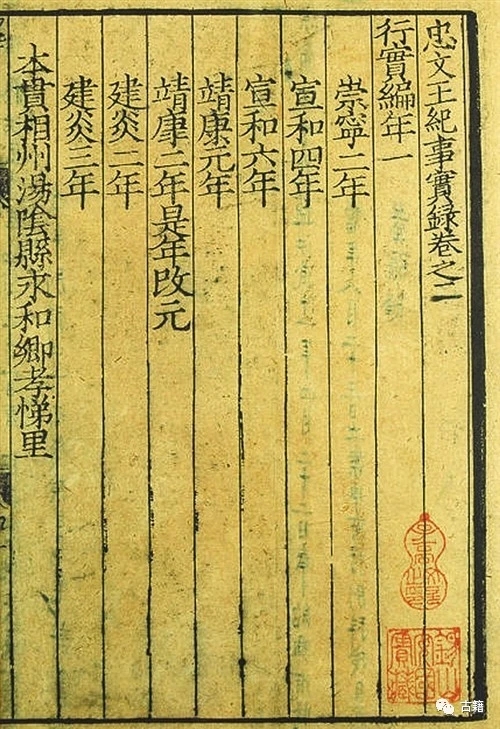 忠文王紀事實錄卷之二
行實編年一
崇寧二年
宣和四年
宣和六年
靖康元年
靖康二年是年改元
建炎二年
建炎三年
本貫相州湯陰縣永和鄉孝悌里
錫山安國寶藏
古籍